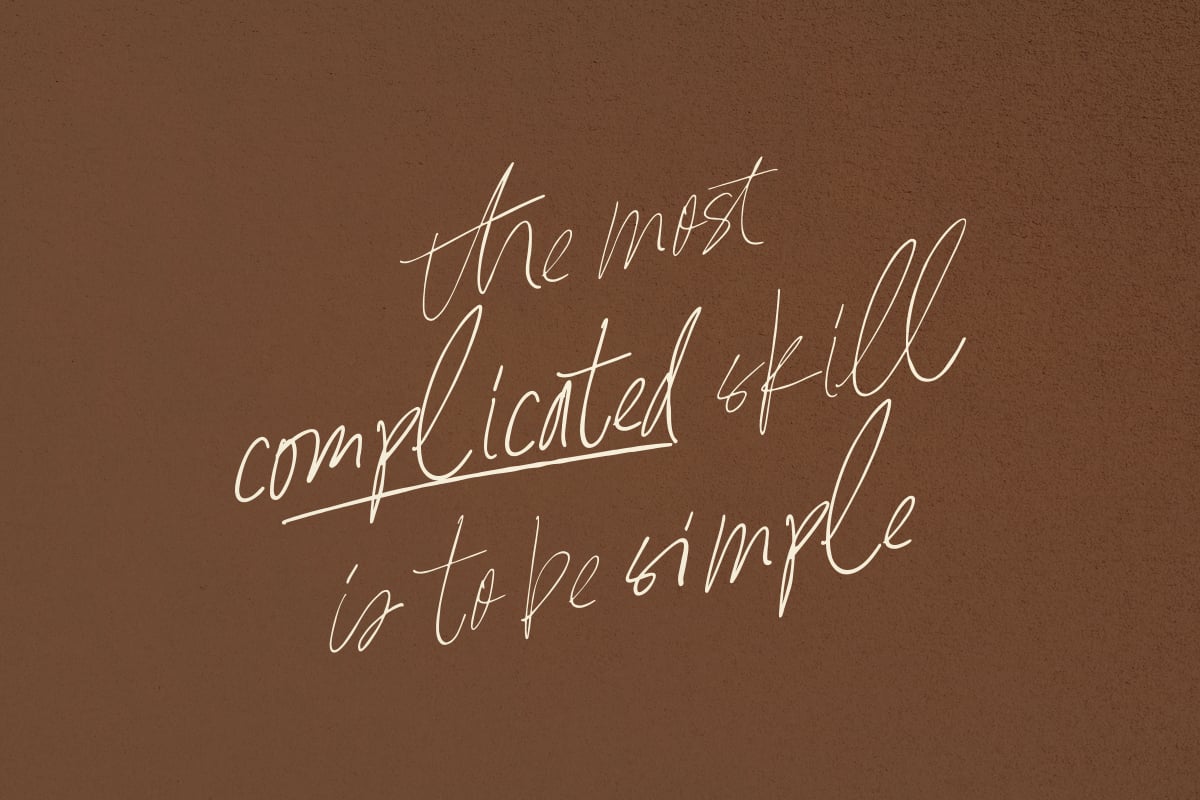 the most
complicated skill
is to be simple